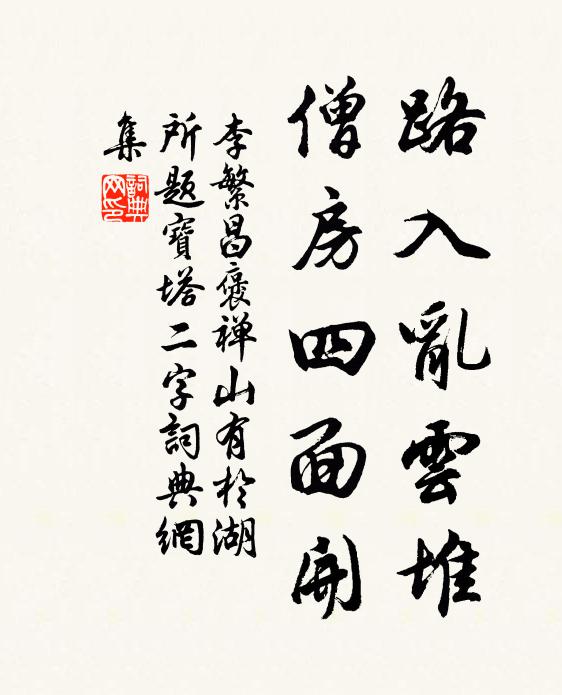 路入亂雲堆
僧房四面開
李繁昌褒禅山有於湖
所題寶塔二字詞典網
集
詞典
网印